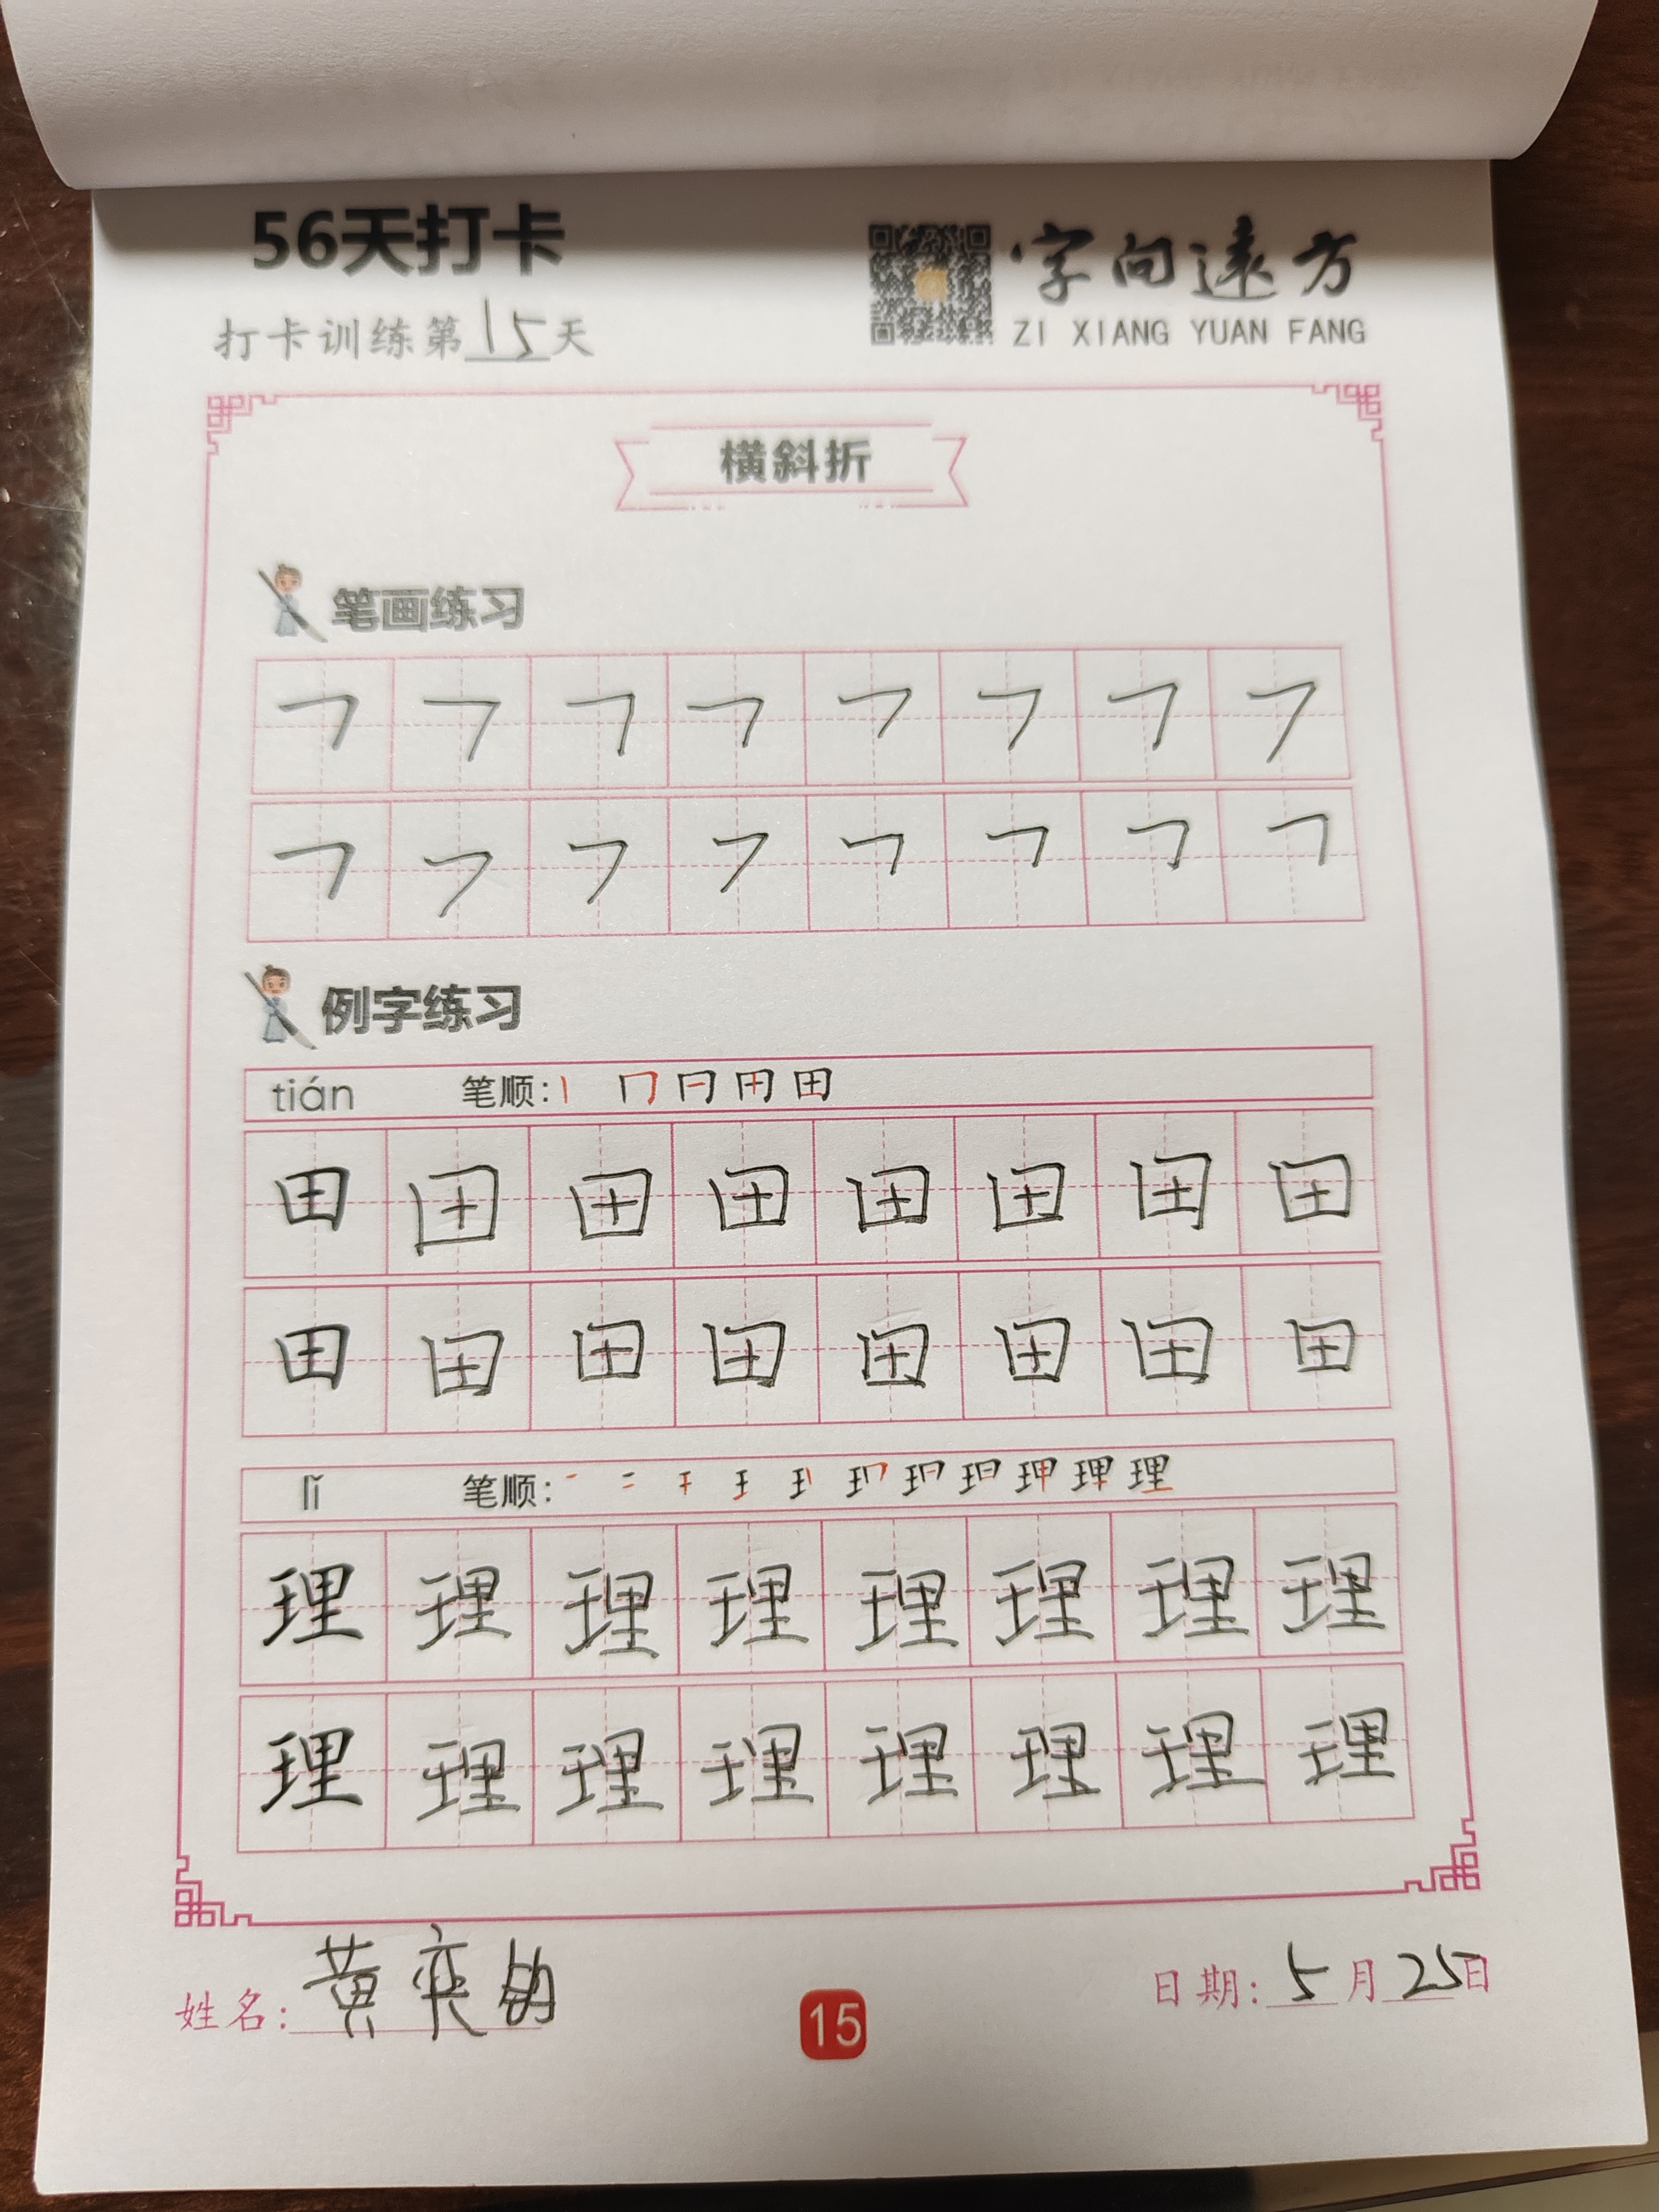 56天打卡
打卡训练第15天
字向遠方
ZI XIANG YUAN FANG
横斜折
笔画练习
㇇ ㇇ ㇇ ㇇ ㇇ ㇇ ㇇ ㇇
㇇ ㇇ ㇇ ㇇ ㇇ ㇇ ㇇ ㇇
例字练习
tián 笔顺:
田 田 田 田 田 田 田 田
田 田 田 田 田 田 田 田
lǐ 笔顺:
理 理 理 理 理 理 理 理
理 理 理 理 理 理 理 理
姓名: 黄奕
15
日期: 5月25日